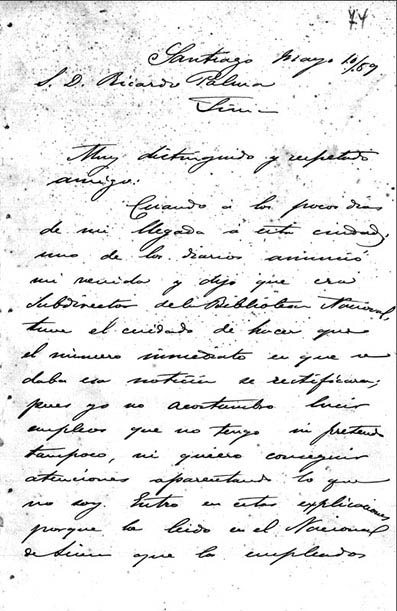 74
Santiago Mayo 10/89
S. D. Ricardo Palma
Lima
Muy distinguido y respetado
amigo:
Cuando a los pocos dias
de mi llegada á esta ciudad,
uno de los diarios anunció
mi venida y dijo que era
Subdirector de la Biblioteca Nacional,
tuve el cuidado de hacer que
el número inmediato en que se
daba esa noticia se rectificára;
pues yo no acostumbro lucir
empleos que no tengo ni pretendo
tampoco, ni quiero conseguir
atenciones aparentando lo que
no soy. Entro en estas explicaciones
porque he leido en el Nacional
de Lima que los empleados